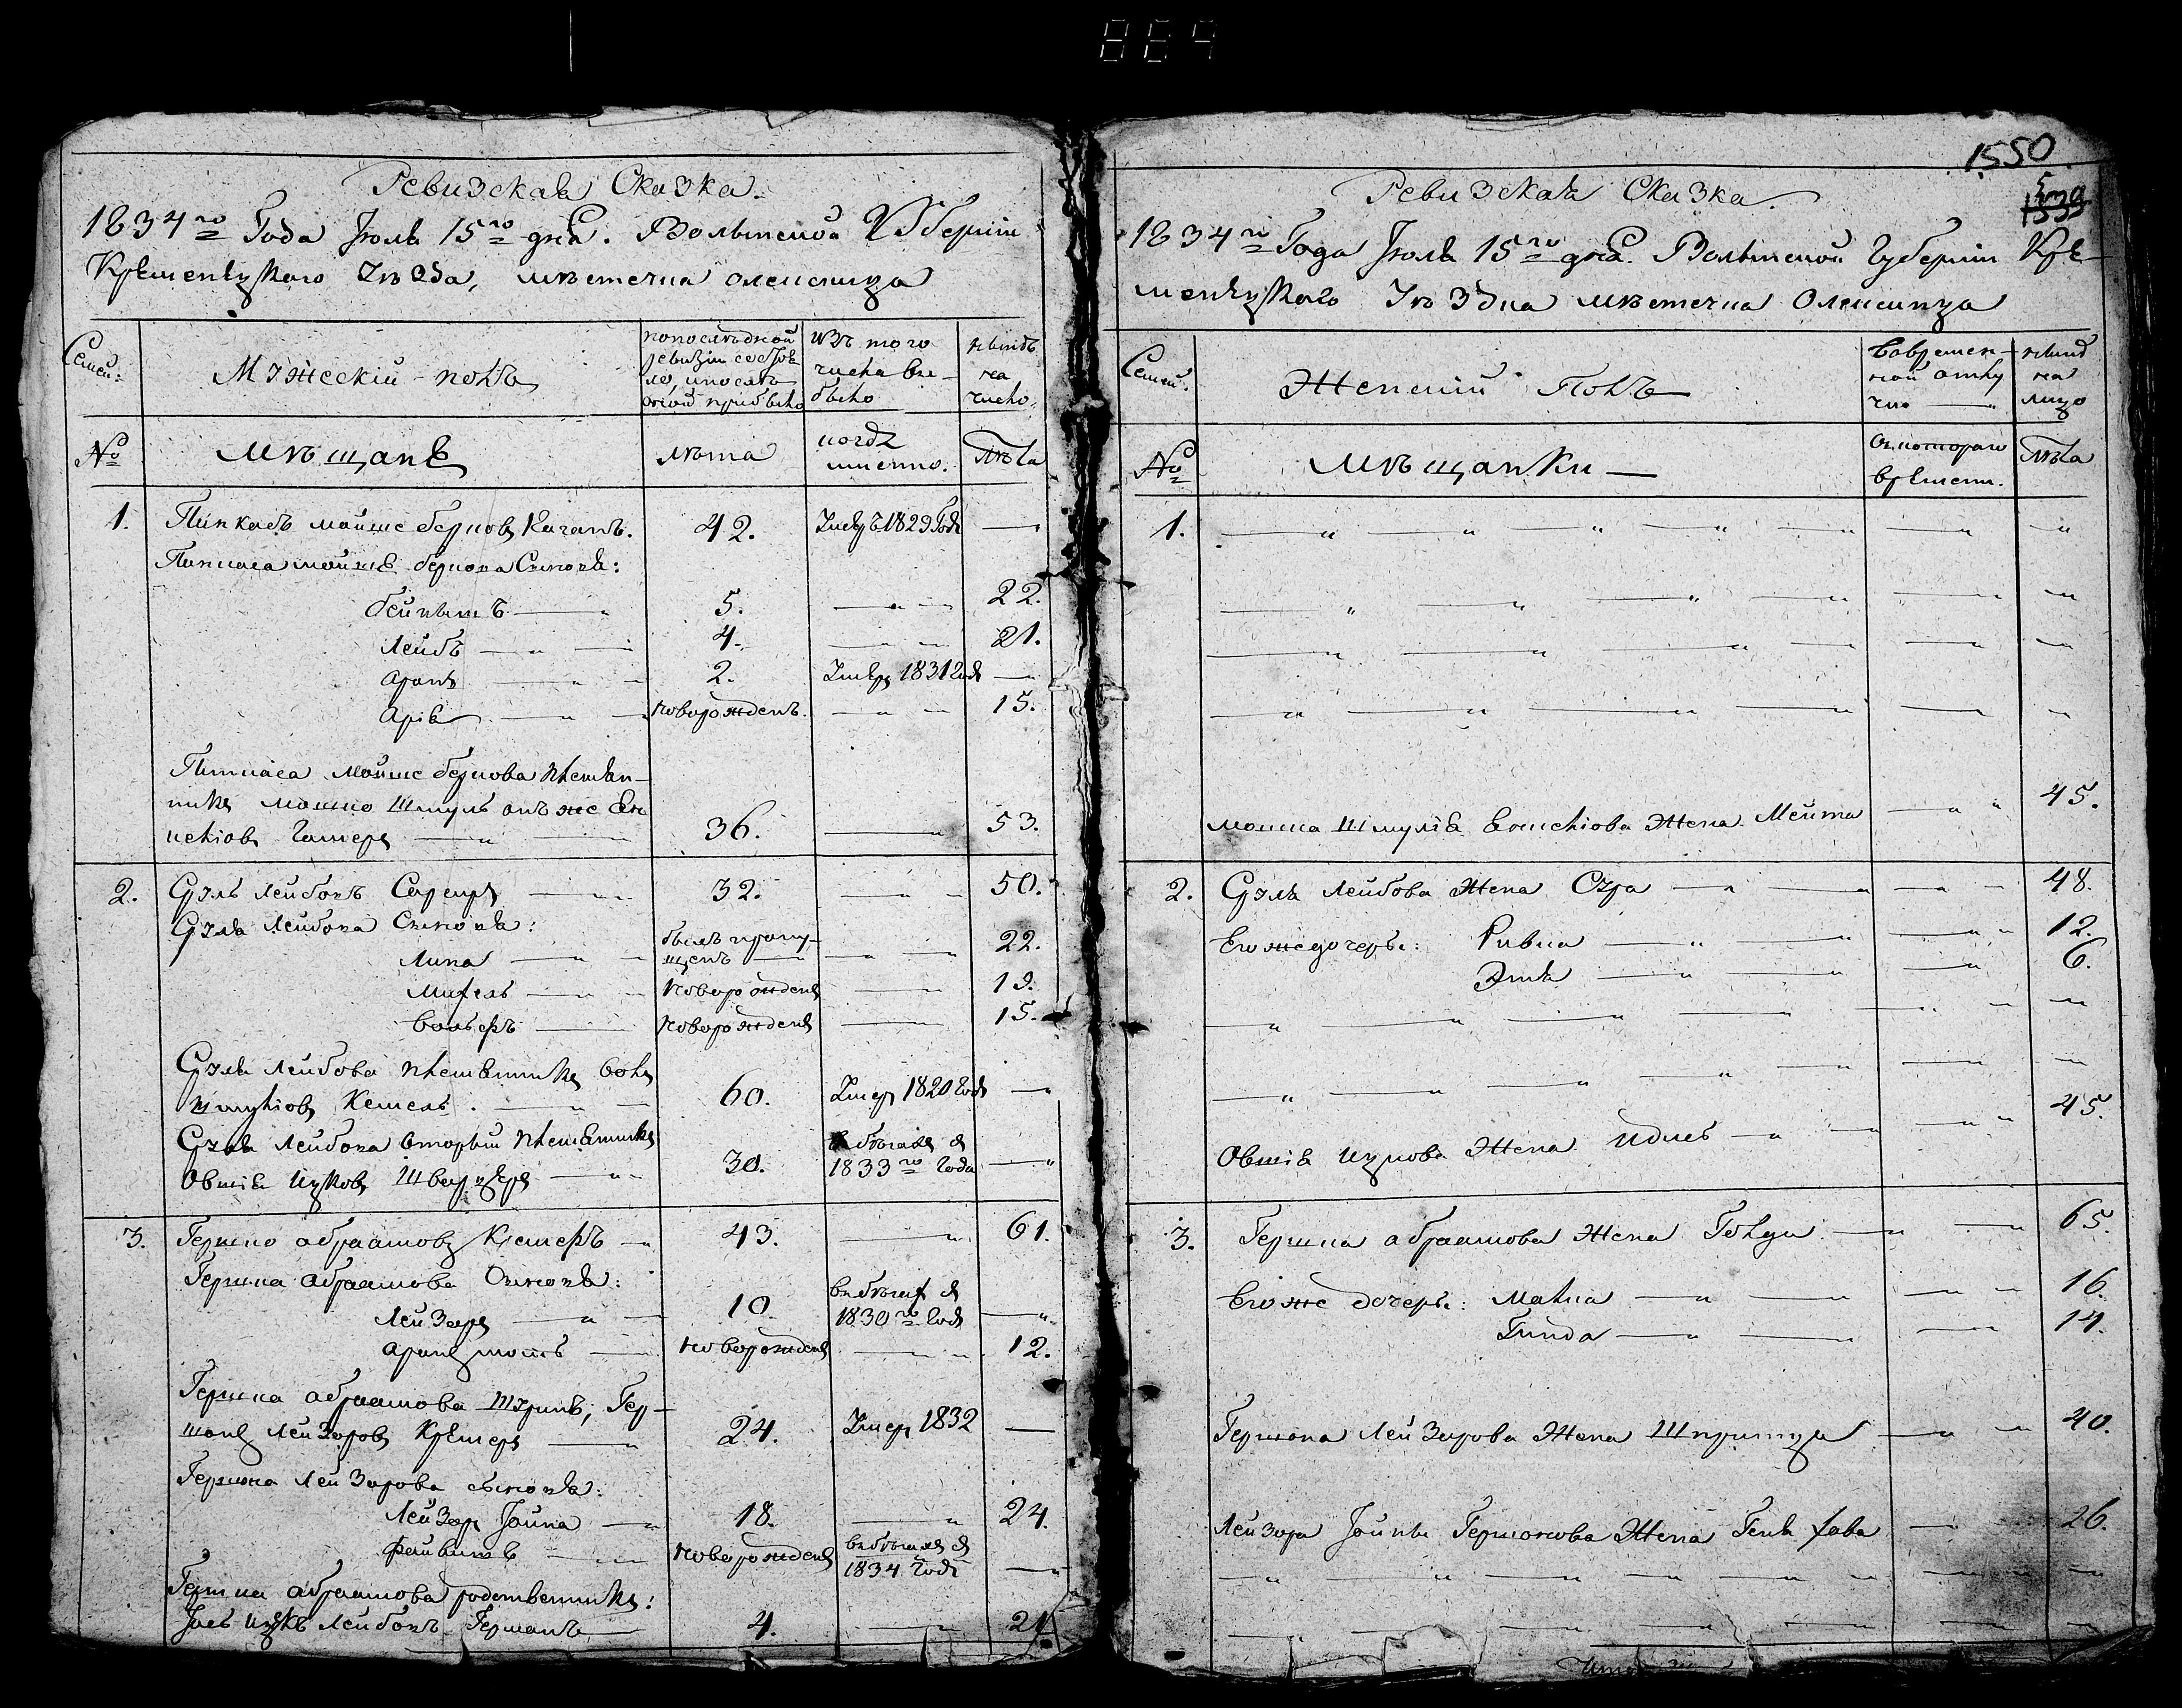 884
Ревизская Сказка.
1834го Года Июля 15го дня. Волынской Губернии
Кременецкаго Уезда, местечка Олексинца
Семьи:
Мужескій полъ
по последней
ревизіи состоя
ло, и после
оной прибыло
Изъ того
числа вы-
было
ныне
на
лицо
№
мещане
лета
когда
именно.
Лета
1.
Пинкасъ Мойше Берков Качанъ.
42.
Умеръ 1829 Года
Пинкаса Мойше Беркова Сыновья:
Бейнышъ
5.
22.
Лейбъ
4.
21.
Аронъ
2.
Умеръ 1831 Года
Арія
новорожденъ.
15.
Пинкаса Мойше Беркова племян-
ника Мошко Шмуль онъ же
Гамеръ
36.
53.
2.
Сруль Лейбовъ
32.
50.
Сруля Лейбова Сыновья:
Липа
былъ пропу-
щенъ
22.
Михель
новорожденъ
19.
Вольфъ
новорожденъ
15.
Сруля Лейбова племянникъ Волъ
Шмуліовъ Кемель.
60.
Умеръ 1820 Года
Сруля Лейбова вторый племянникъ
Овшія Ицков Шварцеръ
30.
в бегахъ съ
1833го Года
3.
Гершко Абрамовъ Кремеръ
43.
61.
Гершка Абрамова Сыновья:
Лейзоръ
10.
в бегахъ съ
1830го Года
Аронъ
новорожденъ
12.
Гершка Абрамова Шуринъ, Гер-
шонъ Лейзоровъ Кремеръ
24.
Умеръ 1832
Гершона Лейзорова сыновья:
Лейзоръ Іойна
18.
24.
Файвишъ
новорожденъ
в бегахъ съ
1834 Года
Гершка Абрамова родственникъ:
Ицкъ Лейбовъ Германъ
4.
21
1550
Ревизская Сказка.
1834го Года Июля 15го дня. Волынской Губернии Кре-
менецкаго Уезда местечка Олексинца
Семьи.
Женскій Полъ
Во времен-
ной отлу
чке
ныне
на
лицо
№
мещанки
Съ котораго
времени.
Лета
1.
Мошка Шмуля Жена Мейта
45.
2.
Сруля Лейбова Жена Сура
48.
Его же дочери: Ривка
12.
Этля
6.
Овшія Ицкова Жена
45.
3.
Гершка Абрамова Жена Гольда
65.
Его же дочери: Малка
16.
Гинда
14.
Гершона Лейзорова Жена Шпринца
40.
Лейзора Іойны Гершонова Жена Геня Хава
26.